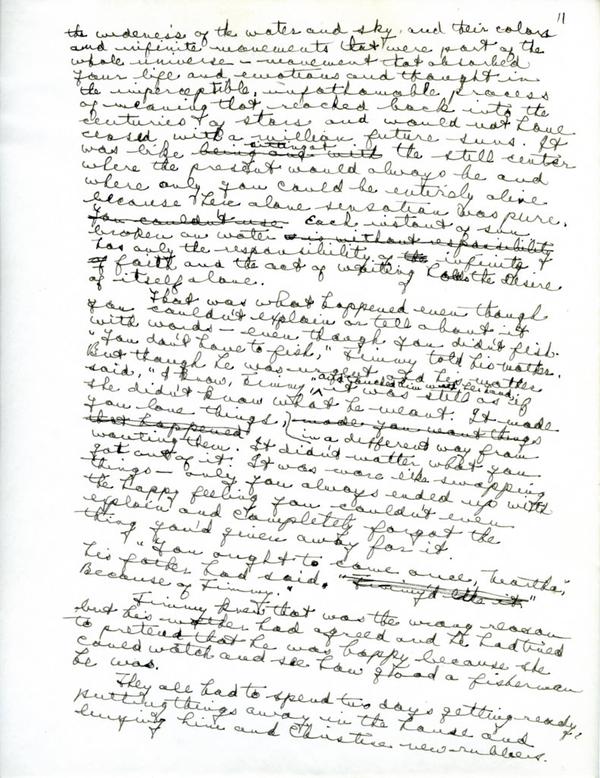 11
the wideness of the water and sky, and their colors
and infinite movements that were part of the
whole universe – movement that absorbed
your life and emotions and thought in
the imperceptible, unfathomable process
of meaning that reached back into the
centuries of stars and would not have
closed with a million future suns. It
was like being one with the still center
where the present would always be and
where only you could be entirely alive
because there alone sensation was pure.
You couldn't use Each instant of sun
broken on water is without responsibility
has only the responsibility of the infinite &
of faith and the act of waiting holds the desire
of itself alone.
That was what happened even though
you couldn't explain or tell about it
with words – even though you didn't fish.
"You don't have to fish," Timmy told his mother.
But though he was urgent and his mother
said, "I know, Timmy," it was still as if
she didn't know what he meant. It made
you love things, made you want things
that happened in a different way from
wanting them. It didn't matter what you
got out of it. It was more like swapping
things – only you always ended up with
the happy feeling you couldn't even
explain and completely forgot the
thing you'd given away for it.
"You ought to come once, Martha,"
his father had said.
"Because of Timmy."
Timmy knew that was the wrong reason
but his mother had agreed and he had tried
to pretend that he was happy because she
could watch and see how good a fisherman
he was.
They all had to spend two days getting ready,
putting things away in the house and
buying him and Christine new rubbers.